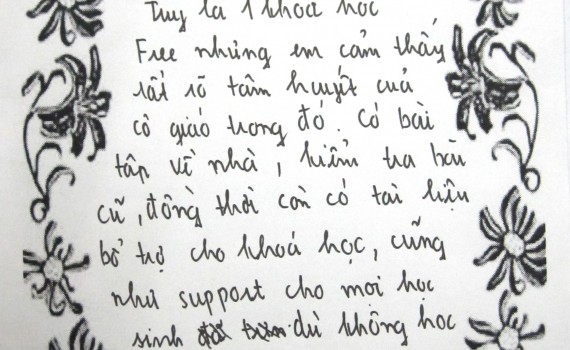 Tuy là 1 khoá học
Free nhưng em cảm thấy
rất rõ tâm huyết của
cô giáo trong đó. Có bài
tập về nhà, kiểm tra bài
cũ, đồng thời còn có tài liệu
bổ trợ cho khoá học, cũng
như support cho mọi học
sinh dù không học